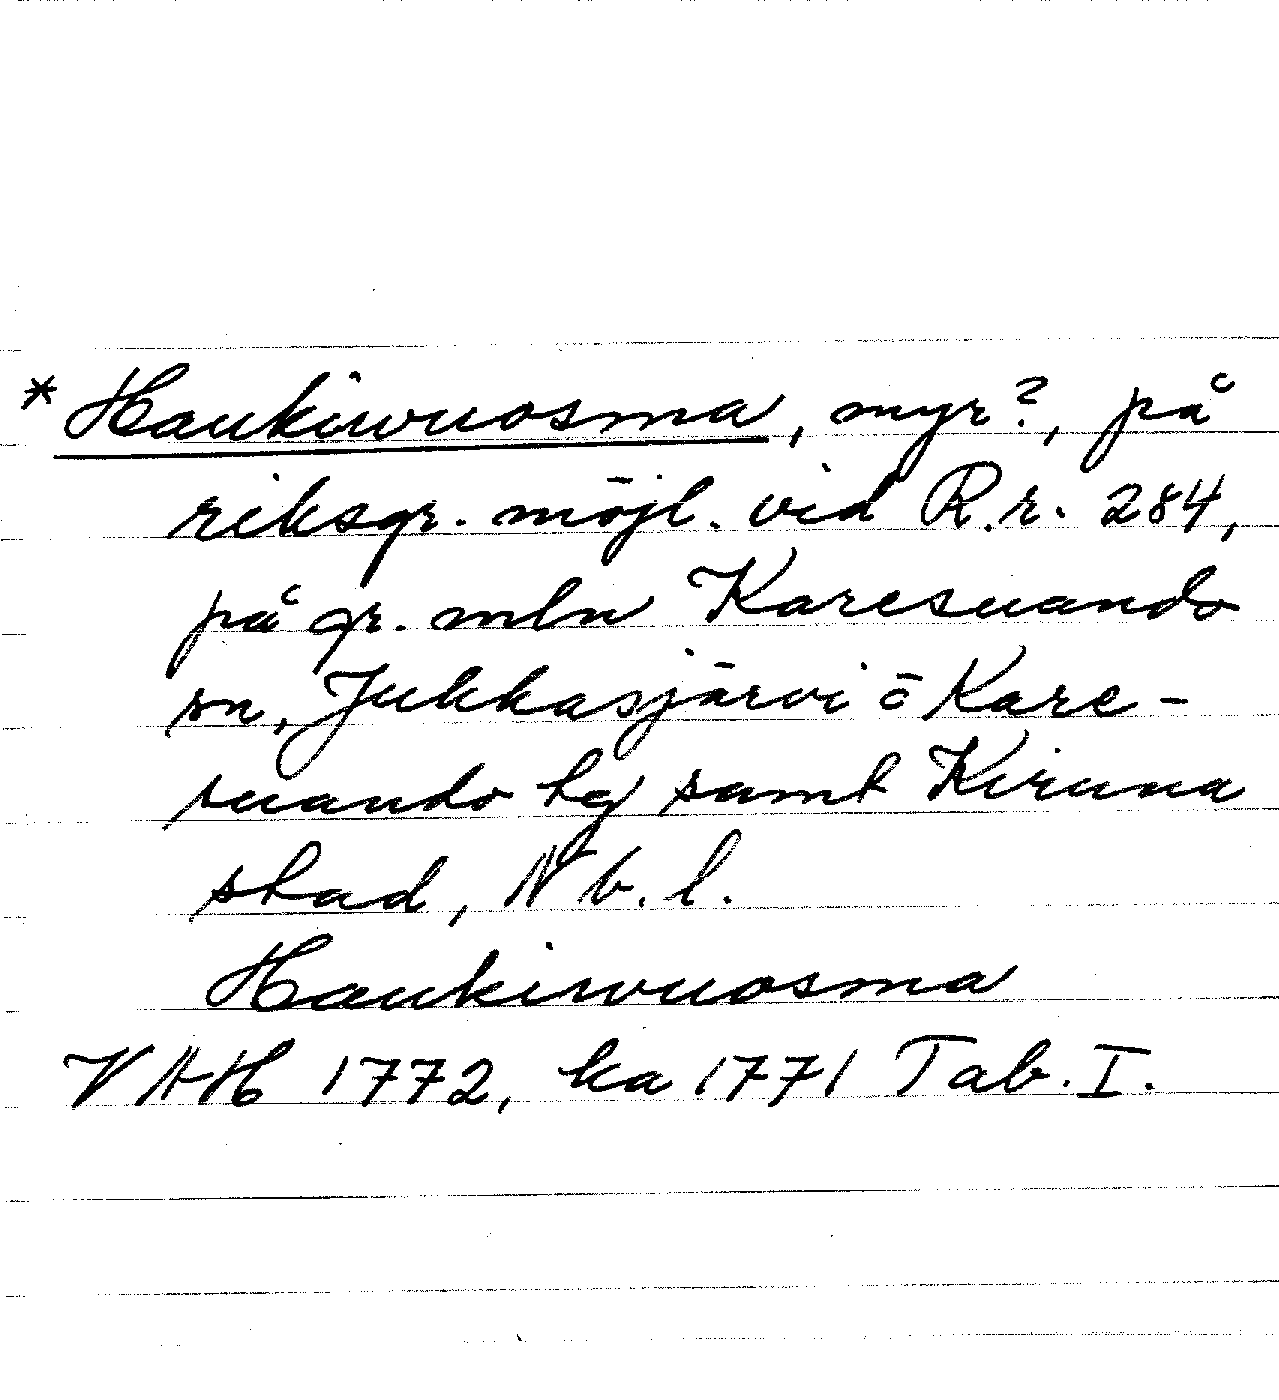 * Haukiwuosma, myr?, på
riksgr. möjl. vid R.r. 284,
på gr. mln Karesuando
sn, Jukkasjärvi o Kare-
suando tg samt Kiruna
stad, Nb.l.
Haukiwuosma
VAH 1772, ka 1771 Tab. I.